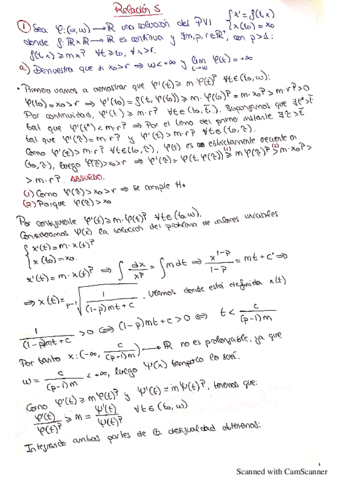 Relación 5
① Sea φ:(α,ω)→ℝ una solución del PVI { x'=f(t,x)
x(t₀)=x₀
donde f:ℝ×ℝ→ℝ es continua y ∃m,p,r∈ℝ⁺, con p>1:
f(t,x) ≥ m x^p ∀t≥t₀, ∀x>r.
a) Demuestra que si x₀>r ⇒ ω<+∞ y lim φ(t)=+∞
• Primero vamos a demostrar que φ'(t) ≥ m φ(t)^p ∀t∈(t₀,ω):
φ(t₀)=x₀>r ⇒ φ'(t₀)=f(t₀,φ(t₀)) ≥ m·φ(t₀)^p = m·x₀^p > m r^p > 0
Por continuidad, φ'(t) ≥ m·r^p en (t₀,t̄). Supongamos que
tal que φ'(t*) < m·r^p ⇒ Por el lema del primer instante
tal que φ'(t̄)=m·r^p y φ'(t)>m·r^p ∀t∈(t₀,t̄).
Como φ'(t)>m·r^p ∀t∈(t₀,t̄), φ(t) es estrictamente creciente en
(t₀,t̄), luego φ(t̄)>x₀>r ⇒ φ'(t̄)=f(t̄,φ(t̄)) ≥ m φ(t̄)^p > m·x₀^p >
> m·r^p. ABSURDO.
(1) Como φ(t̄)>x₀>r ⇒ se cumple
(2) Porque φ(t̄)>x₀
Por consiguiente φ'(t) ≥ m·φ(t)^p ∀t∈(t₀,ω).
Consideramos ψ(t) la solución del problema de valores iniciales
{ x'(t)=m·x(t)^p
x(t₀)=x₀.
x'(t)=m·x(t)^p ⇒ ∫ dx/x^p = ∫ m dt ⇒ x^(1-p)/(1-p) = mt + c' ⇒
⇒ x(t) = ^(p-1)√(1/((1-p)mt+c)). Veamos donde está definida x(t)
1/((1-p)mt+c) > 0 ⇔ (1-p)mt+c > 0 ⇔ t < c/((p-1)m)
Por tanto x:(-∞, c/((p-1)m)) → ℝ no es prolongable, ya que
ω = c/((p-1)m) < +∞, luego ψ(t) tampoco lo será.
Como φ'(t) ≥ m φ(t)^p y ψ'(t) = m ψ(t)^p, tenemos que:
φ'(t)/φ(t)^p ≥ m = ψ'(t)/ψ(t)^p ∀t∈(t₀,ω)
Integrando ambas partes de la desigualdad obtenemos:
1
Scanned with CamScanner